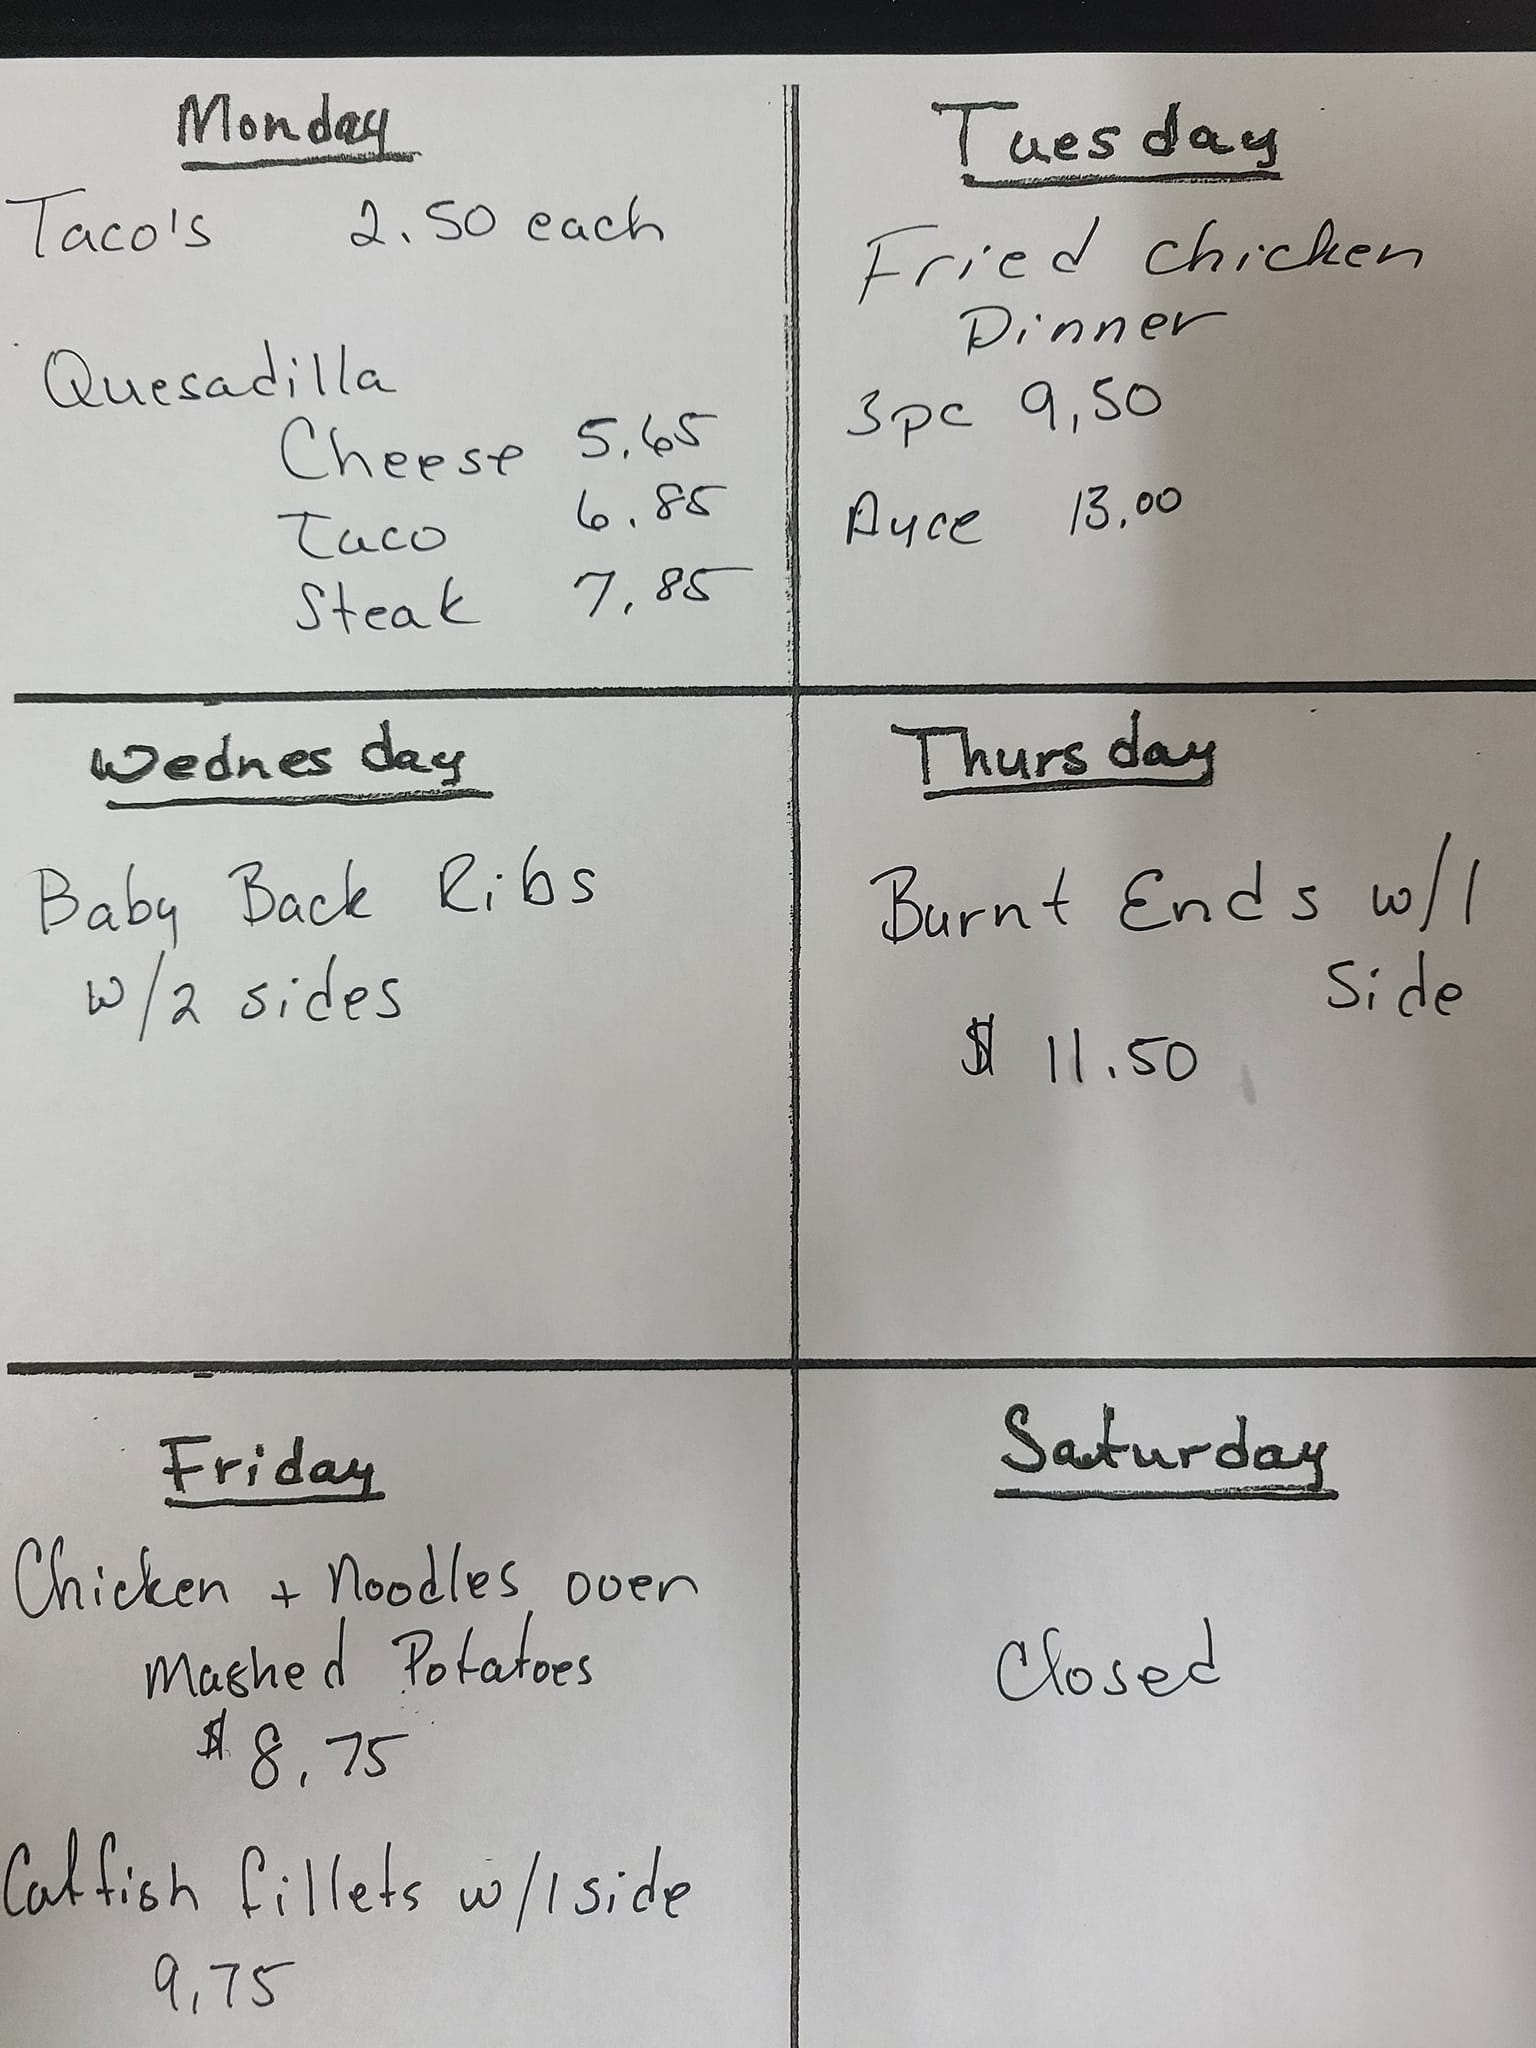 Monday
Taco's 2.50 each
Quesadilla
Cheese 5.65
Taco 6.85
Steak 7.85
Tuesday
Fried chicken
Dinner
3pc 9,50
Ayce 13.00
Wednesday
Baby Back Ribs
w/2 sides
Thursday
Burnt Ends w/1
Side
$ 11.50
Friday
Chicken + Noodles over
Mashed Potatoes
$ 8,75
Catfish fillets w/1 side
9,75
Saturday
Closed